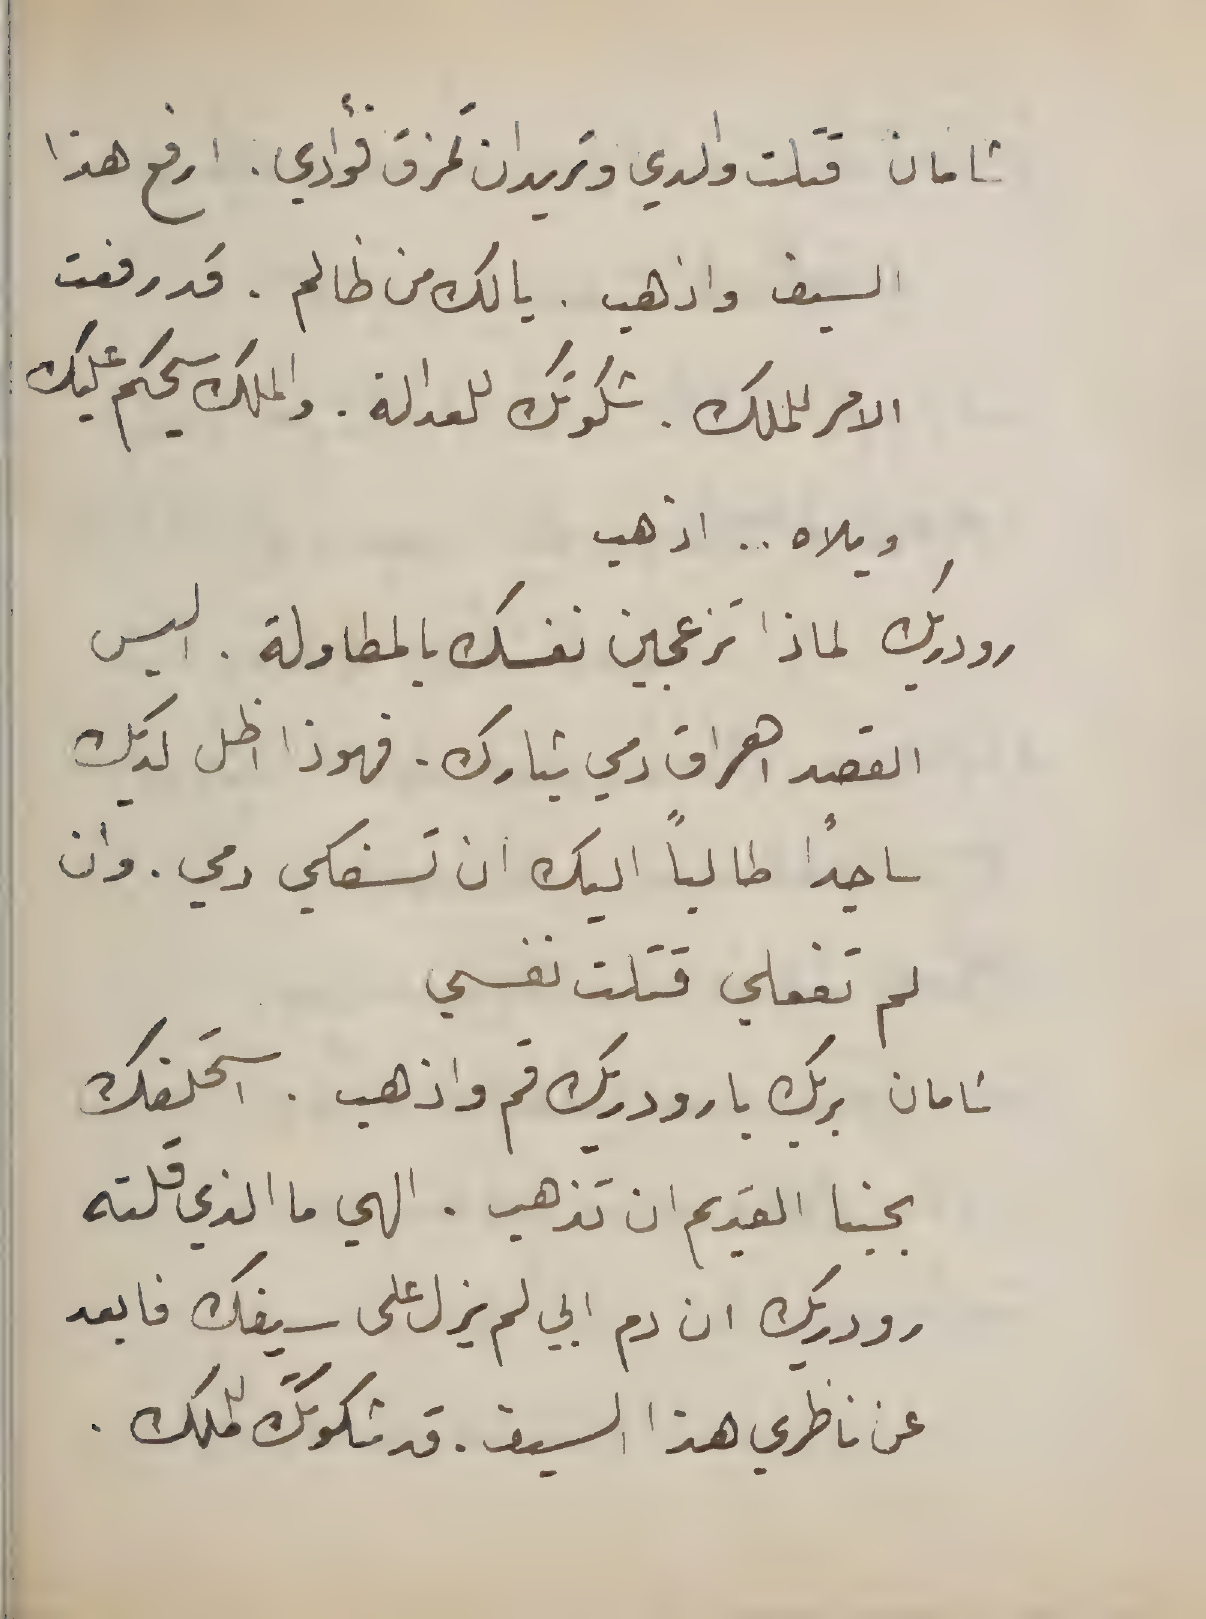 شامان قتلت والدي وتريد ان تمزق فؤادي. ارفع هذا
السيف واذهب . يا لك من ظالم . قد رفعت
الامر للملك . شكوتك للعدالة . والملك سيحكم عليك
ويلاه .. اذهب
رودريك لماذا تزعجين نفسك بالمطاولة . اليس
القصد اهراق دمي بثارك . فهوذا اظل لديك
ساجدًا طالباً اليك ان تسفكي دمي . وان
لم تفعلي قتلت نفسي
شامان بربك يا رودريك قم واذهب . استحلفك
بحبنا القديم ان تذهب . الهي ما الذي قلته
رودريك ان دم ابي لم يزل على سيفك فابعد
عن ناظري هذا السيف . قد شكوتك للملك .